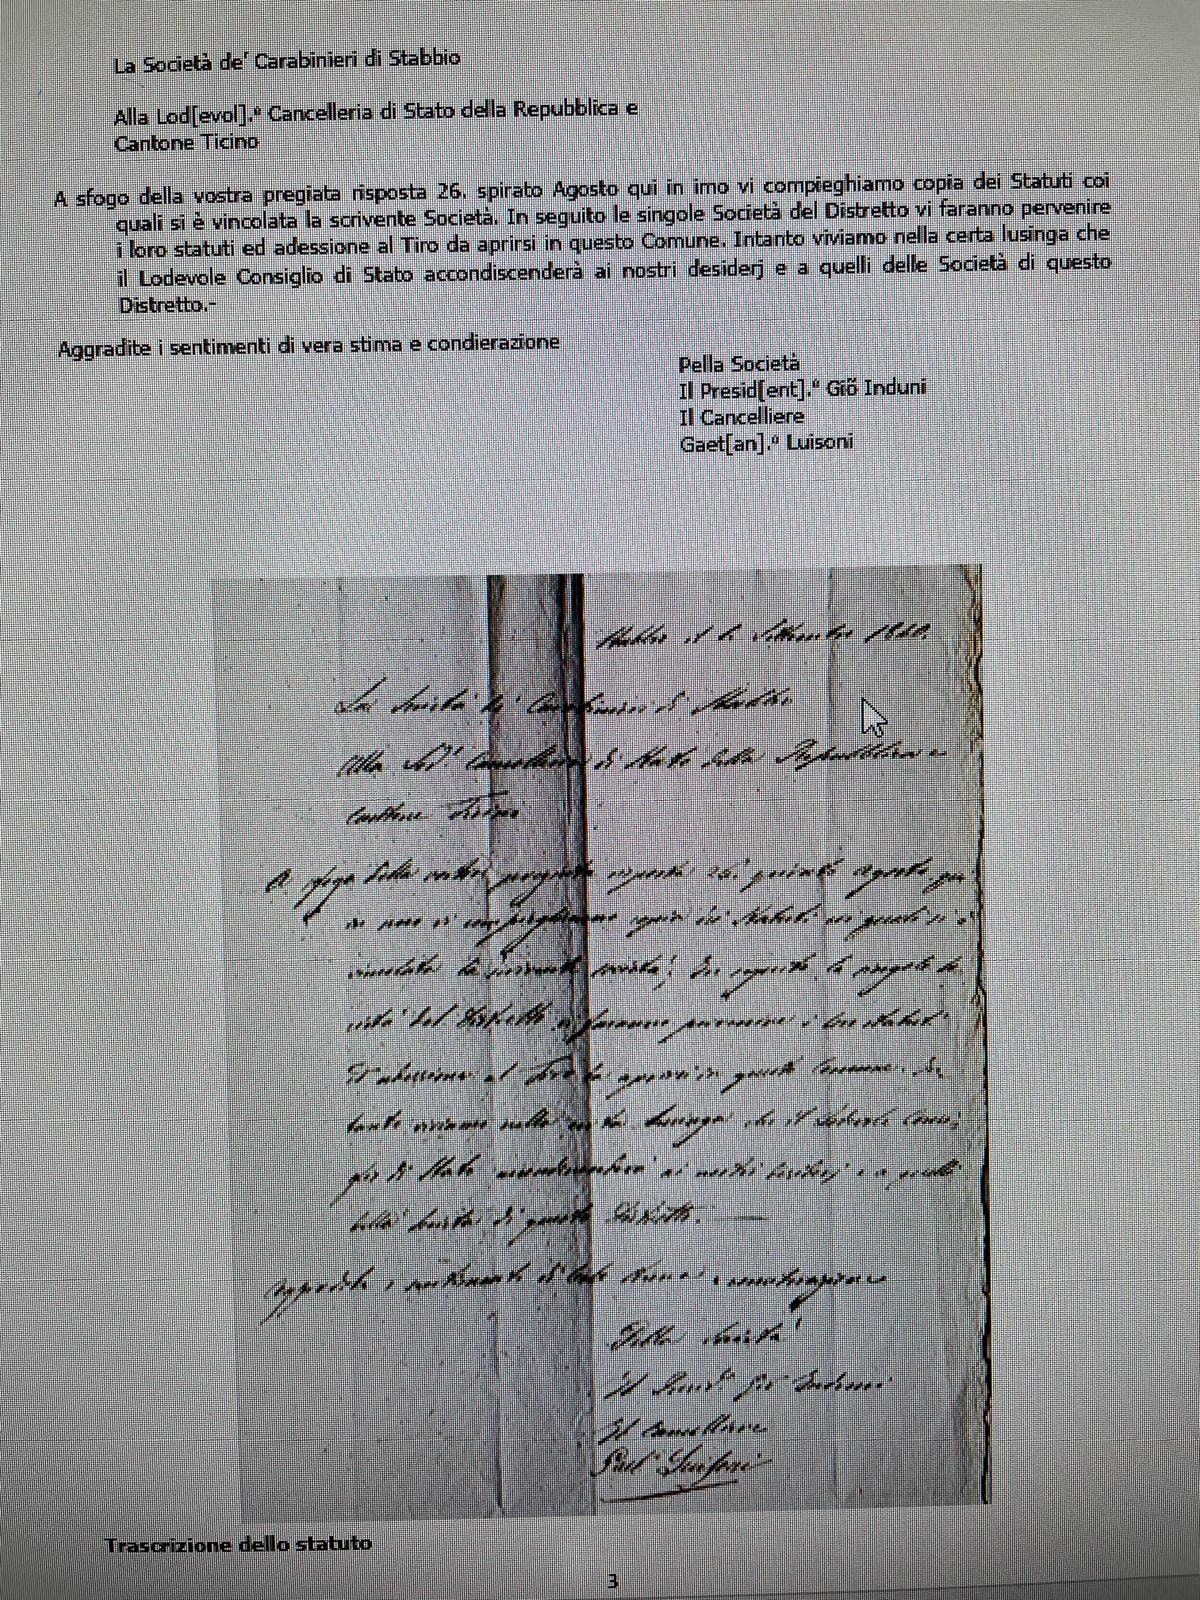 La Società de' Carabinieri di Stabbio
Alla Lod[evol].ᵉ Cancelleria di Stato della Repubblica e
Cantone Ticino
A sfogo della vostra pregiata risposta 26. spirato Agosto qui in imo vi compieghiamo copia dei Statuti coi
quali si è vincolata la scrivente Società. In seguito le singole Società del Distretto vi faranno pervenire
i loro statuti ed adessione al Tiro da aprirsi in questo Comune. Intanto viviamo nella certa lusinga che
il Lodevole Consiglio di Stato accondiscenderà ai nostri desiderj e a quelli delle Società di questo
Distretto.-
Aggradite i sentimenti di vera stima e condierazione
Pella Società
Il Presid[ent].ᵉ Giõ Induni
Il Cancelliere
Gaet[an].º Luisoni
Stabbio il Settembre
La Società de' Carabinieri di Stabbio
Alla Cancelleria di Stato della Repubblica e
Cantone Ticino
A sfogo della vostra pregiata risposta 26. agosto qui
in imo vi compieghiamo copia dei Statuti coi quali si è
vincolata la scrivente società. In seguito le singole So
cietà del Distretto vi faranno pervenire i loro statuti
ed adessione al Tiro da aprirsi in questo Comune. In
tanto viviamo nella certa lusinga che il Lodevole Consi
glio di Stato accondiscenderà ai nostri desiderj e a quelli
delle Società di questo Distretto.
Aggradite i sentimenti di
Pella Società
Il Induni
Il Cancelliere
Luisoni
Trascrizione dello statuto
3